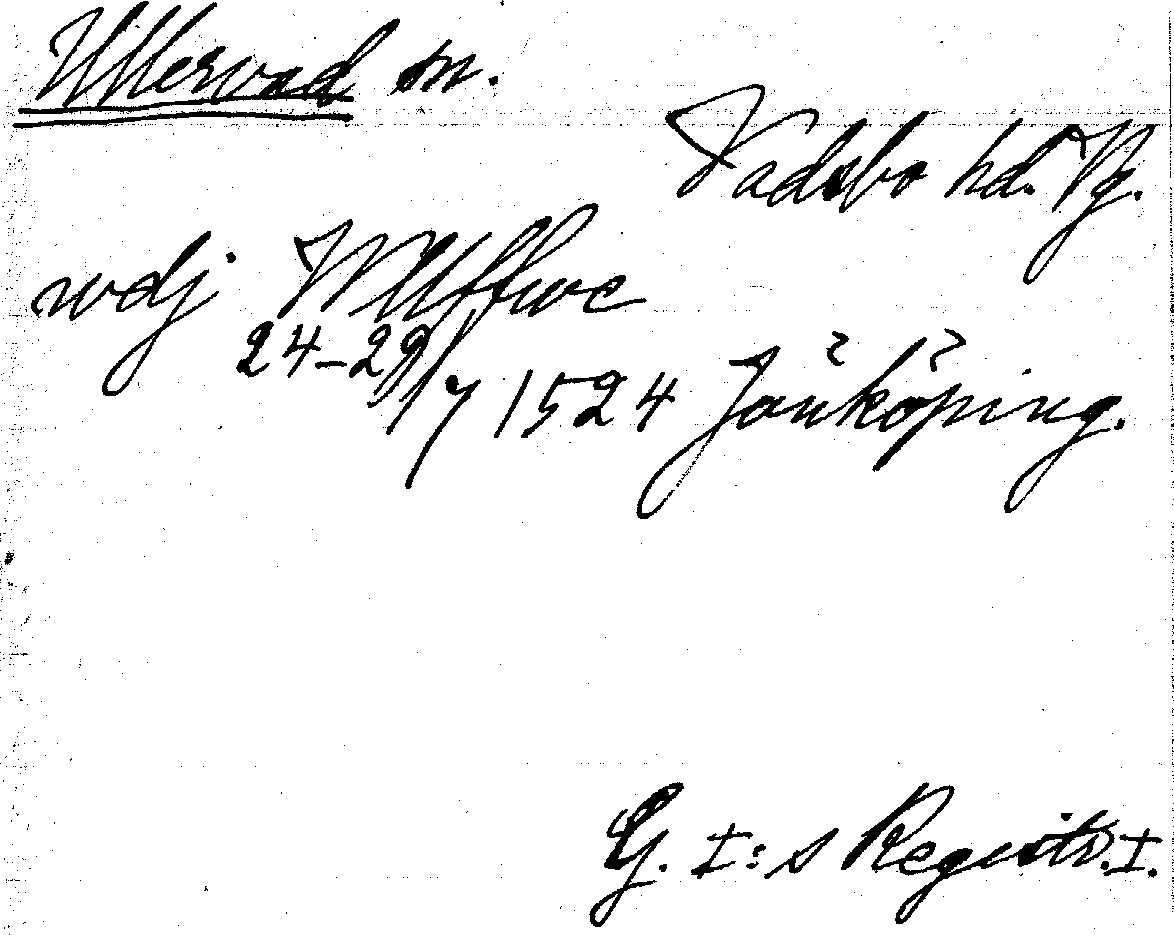 Ullervad sn.
Vadsbo hd. Vg.
wdj Wllffwe
24-29/7 1524 Jönköping.
G. I:s Registr. I.